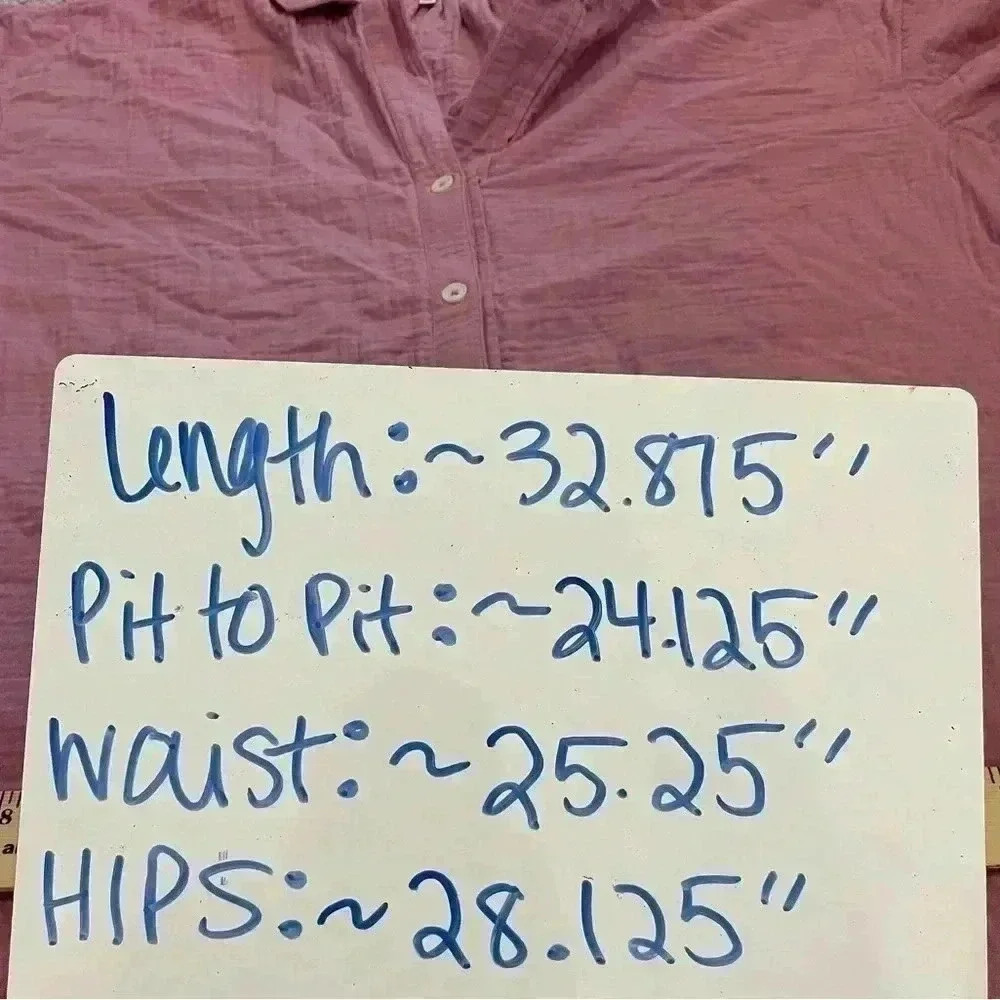 Length: ~32.875"
Pit to Pit: ~24.125"
Waist: ~25.25"
HIPS: ~28.125"
8